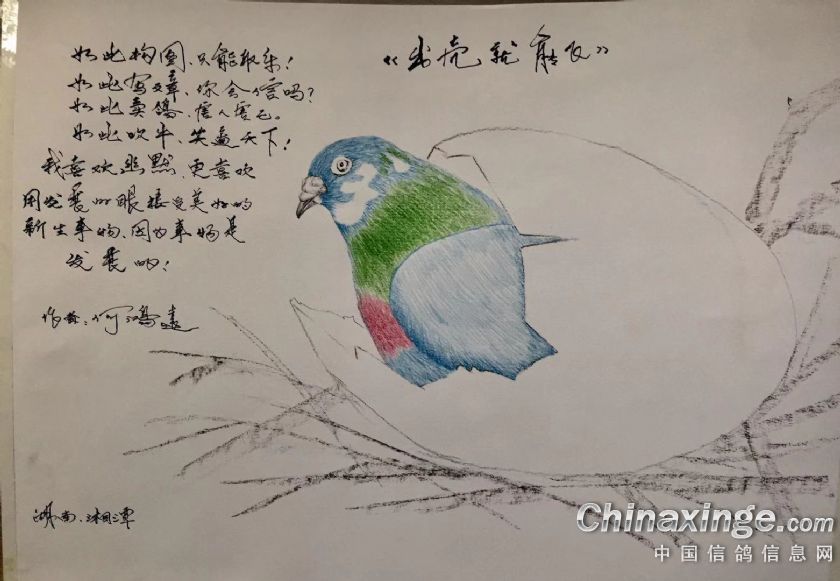 《出壳就能飞》
如此构图、只能取乐!
如此写章、你会信吗?
如此卖鸽、害人害己。
如此吹牛、笑逼天下!
我喜欢幽默、更喜欢
用发展的眼接受美好的
新生事物、因为事物是
发展的!
作者:何鸿远
湖南、湘潭
Chinaxinge.com
中国信鸽信息网